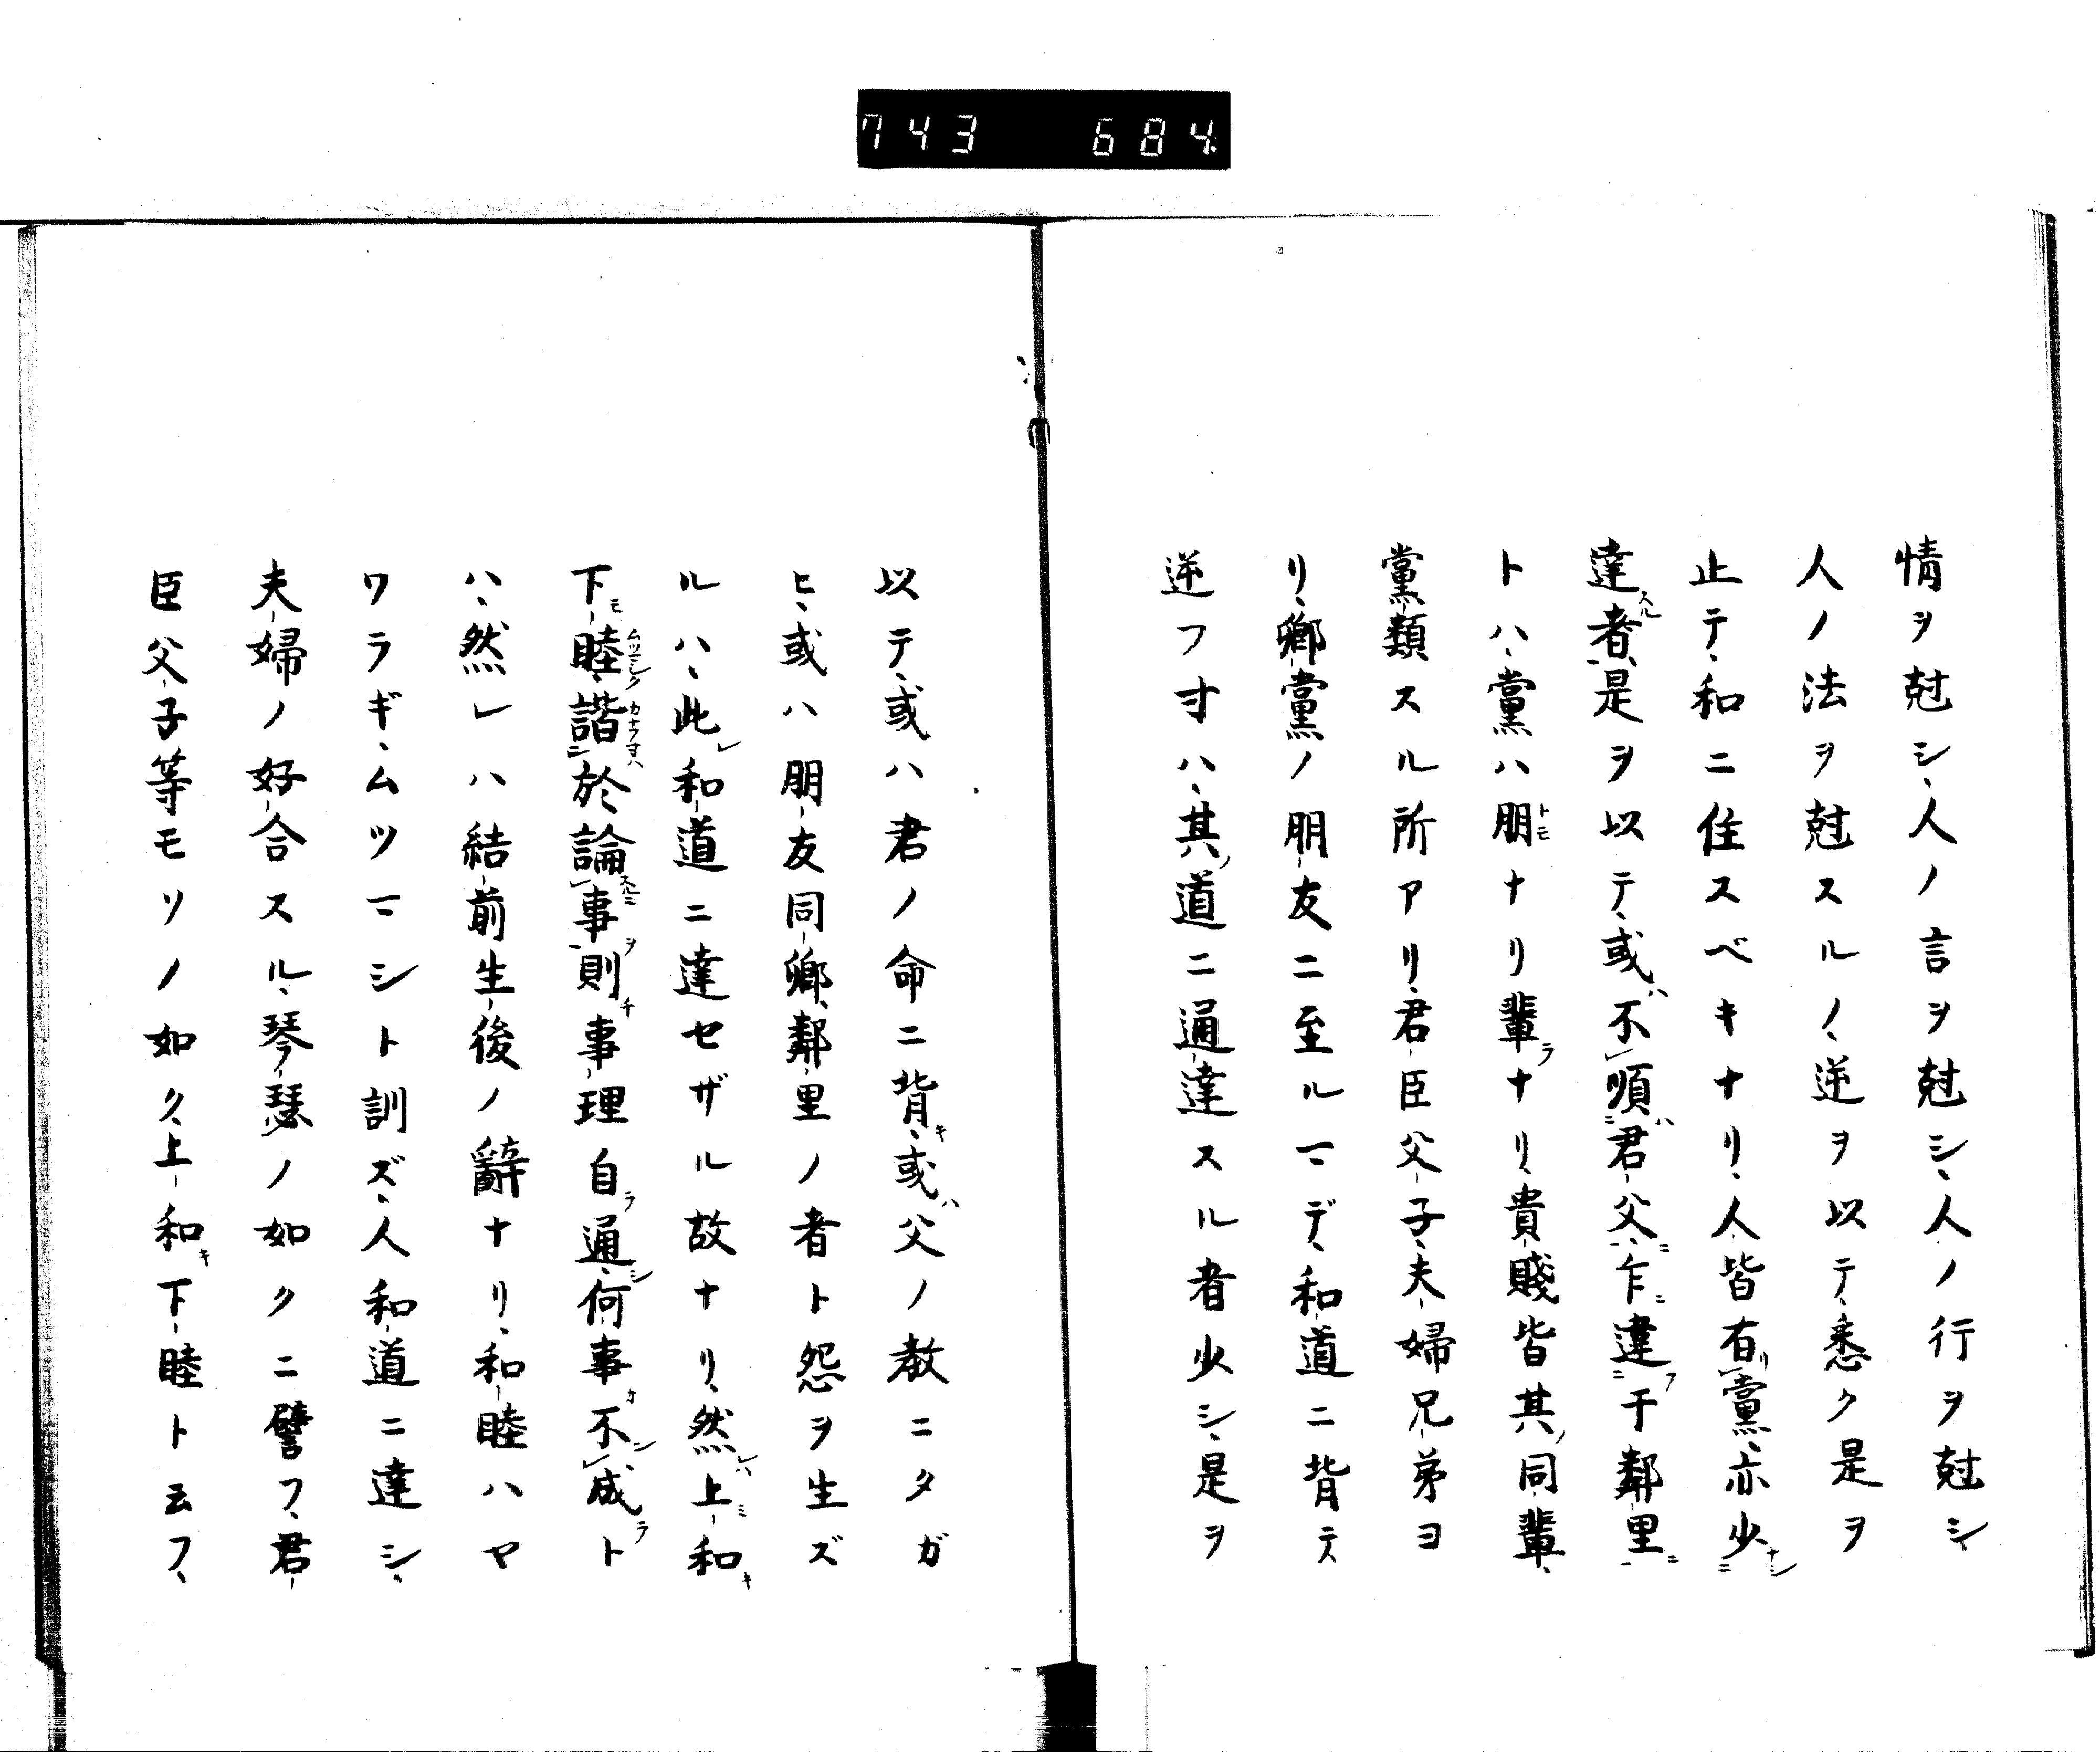 743 684
情ヲ尅シ、人ノ言ヲ尅シ、人ノ行ヲ尅シ、
人ノ法ヲ尅スルノ、逆ヲ以テ、悉ク是ヲ
止テ、和ニ住スベキナリ、人皆有リ黨、亦少ナシ
達スル者、是ヲ以テ、或ハ不順ハ君父ニ乍ニ違フ于鄰里ニ
トハ、黨ハ朋トモナリ輩ラナリ、貴賤皆其ノ同輩、
黨類スル所アリ、君臣父子、夫婦兄弟ヨ
リ、鄉黨ノ朋友ニ至ルマデ、和道ニ背テ
逆フ寸ハ、其ノ道ニ通達スル者少シ、是ヲ
以テ、或ハ君ノ命ニ背キ、或ハ父ノ教ニタガ
ヒ、或ハ朋友同鄉、鄰里ノ者ト怨ヲ生ズ
ルハ、此レ和道ニ達セザル故ナリ、然レハ上ミ和キ
下モ睦ムツマシク諧カナフ寸ハ於論スルニ事ヲ則チ事理自ラ通シ、何事カ不ン成ラト
ハ、然レハ結前生後ノ辭ナリ、和睦ハヤ
ワラギ、ムツマシト訓ズ、人和道ニ達シ、
夫婦ノ好合スル、琴瑟ノ如クニ譬フ、君
臣父子等モソノ如ク、上和キ下睦ト云フ、